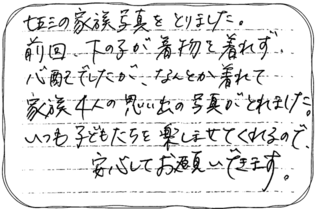 七五三の家族写真をとりました。
前回、下の子が着物を着れず、
心配でしたが、なんとか着れて
家族4人の思い出の写真がとれました。
いつも子どもたちを楽しませてくれるので、
安心してお願いできます。